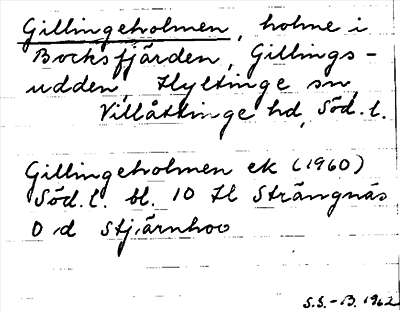 Gillingeholmen, holme i
Bocksfjärden, Gillings-
udden, Hyltinge sn,
Villåttinge hd, Söd. l.
Gillingeholmen ek (1960)
Söd. l. bl. 10 H Strängnäs
O d Stjärnhov
S.S.-B. 1962